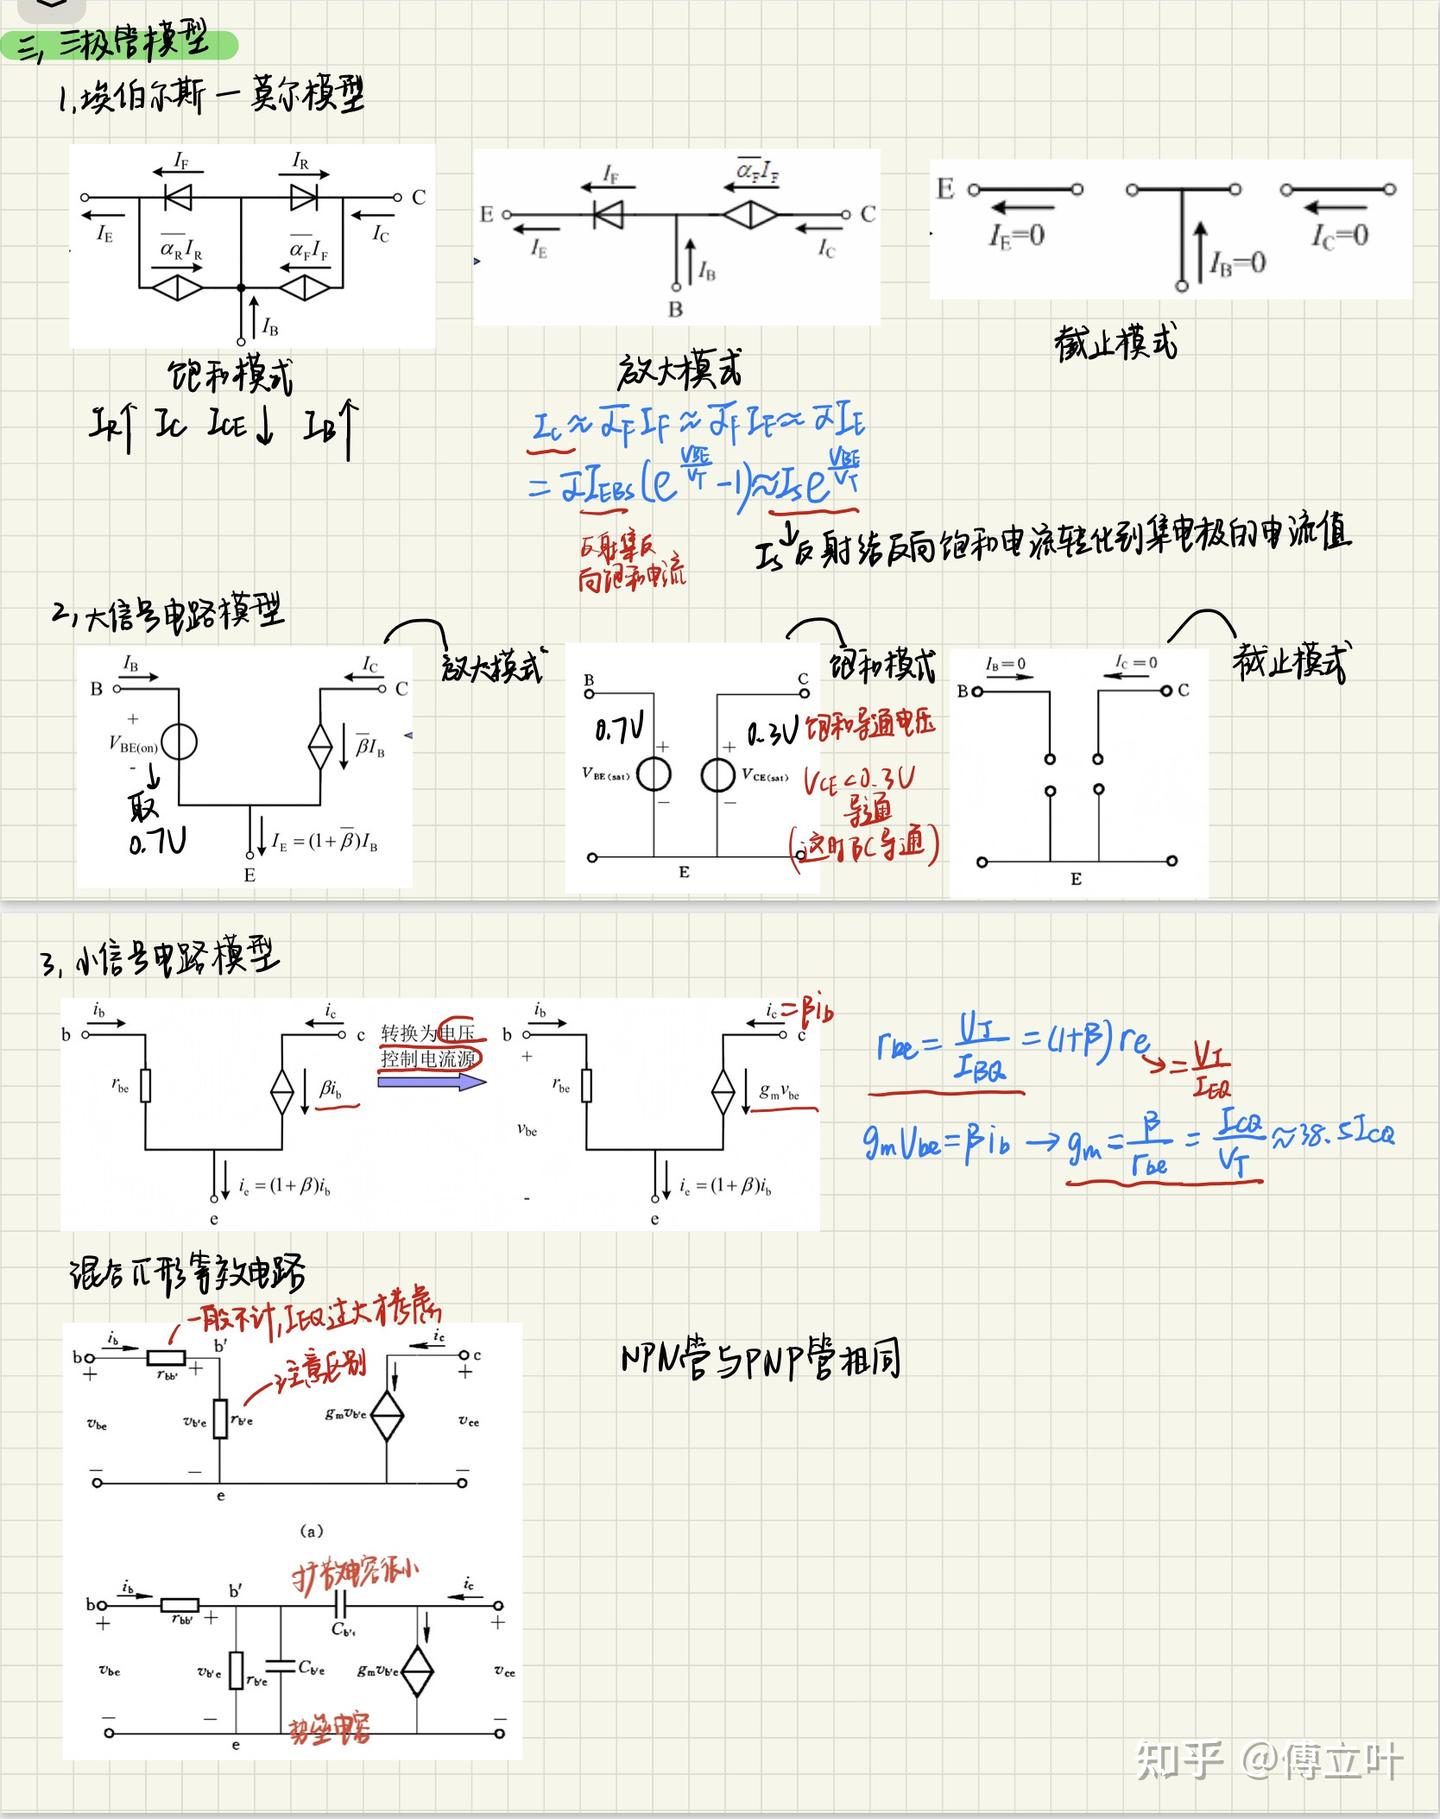 三,三极管模型
1,埃伯尔斯一莫尔模型
I_F I_R
C
I_E I_C
α̅_R I_R α̅_F I_F
I_B
饱和模式
I_R↑ I_C I_CE↓ I_B↑
I_F α̅_F I_F
E C
I_E I_C
I_B
B
放大模式
I_C≈α̅_F I_F≈α̅_F I_E≈α̅I_E
=α̅I_EBS(e^{V_BE/V_T}-1)≈I_S e^{V_BE/V_T}
反射集反
向饱和电流
I_S↓反射结反向饱和电流转化到集电极的电流值
E
I_E=0
I_B=0
I_C=0
截止模式
2,大信号电路模型
I_B I_C
B C
+
V_BE(on)
-
β̅I_B
取
0.7V
I_E=(1+β̅)I_B
E
放大模式
B C
0.7V
+
V_BE(sat)
−
+
V_CE(sat)
−
0.3V
E
饱和模式
饱和导通电压
V_CE<0.3V
导通
(这时BC导通)
I_B=0 I_C=0
B C
E
截止模式
3,小信号电路模型
i_b i_c
b c
r_be
βi_b
i_e=(1+β)i_b
e
转换为电压
控制电流源
i_b i_c=βi_b
b c
+
r_be
v_be
g_m v_be
-
i_e=(1+β)i_b
e
r_be=V_T/I_BQ=(1+β)r_e
→=V_T/I_EQ
g_m V_be=βi_b→g_m=β/r_be=I_CQ/V_T≈38.5I_CQ
混合π形等效电路
一般不计,I_EQ过大才考虑
注意区别
i_b b' i_c
b c
+ r_bb' + +
v_be v_b'e r_b'e g_m v_b'e v_ce
− − −
e
(a)
扩散电容很小
i_b b' i_c
b
+ r_bb' + C_b'c +
v_be v_b'e r_b'e C_b'e g_m v_b'e v_ce
− − −
势垒电容
e
NPN管与PNP管相同
知乎 @傅立叶